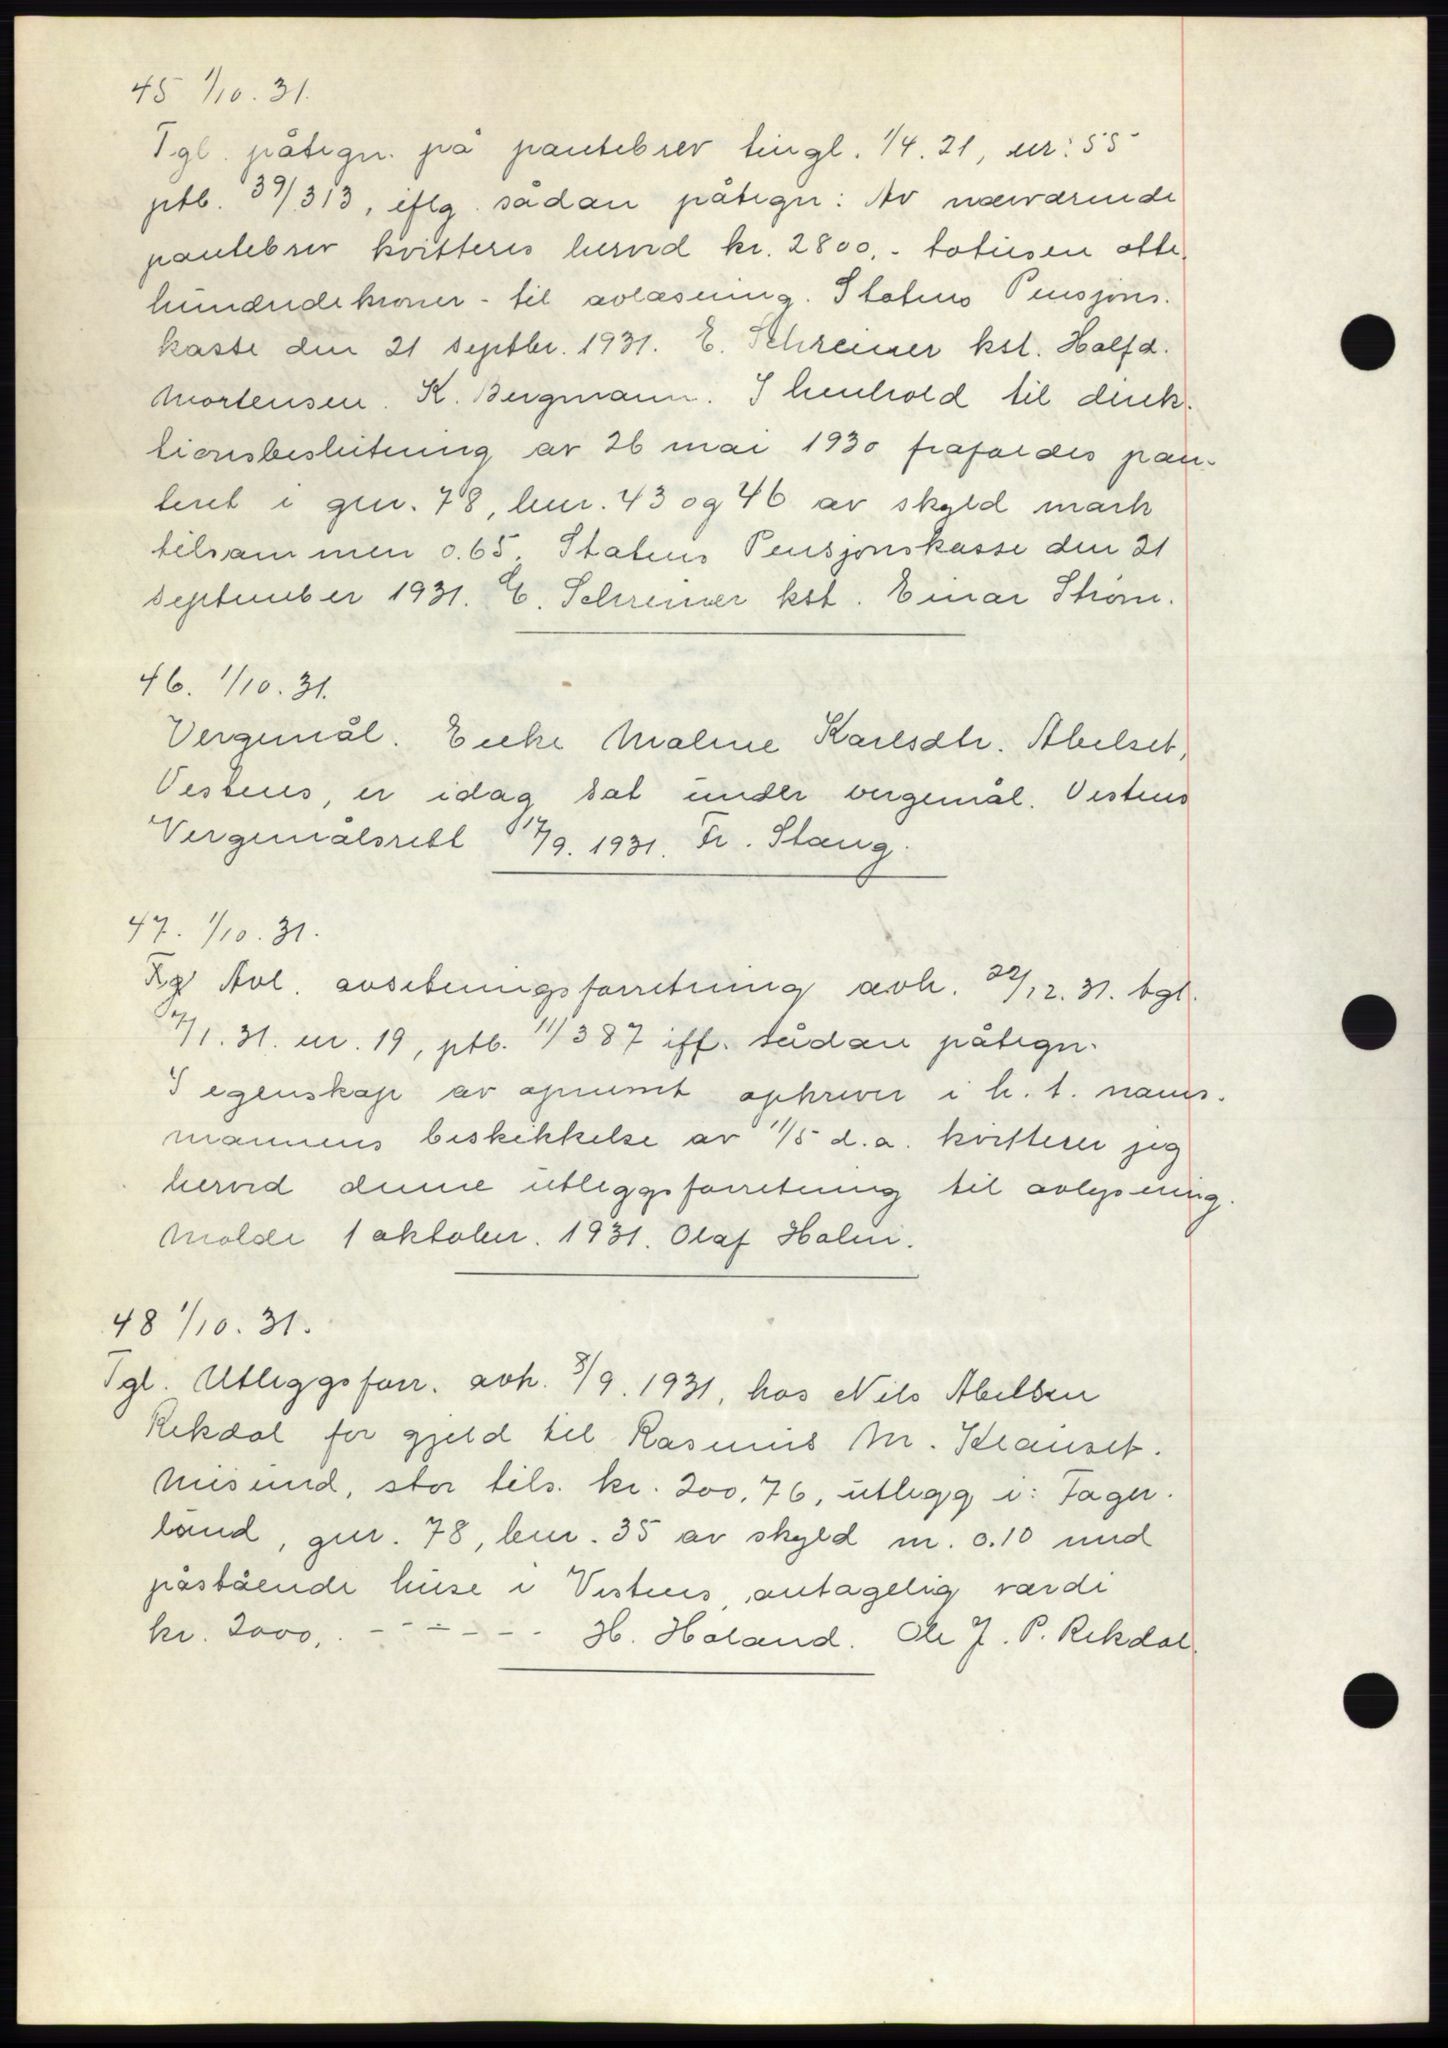 45 1/10. 31.
Tgl. påtegn. på pantebrev tingl. 1/4. 21, nr: 55
ptb. 39/313, iflg. sådan påtegn: Av nærværende
pantebrev kvitteres herved kr. 2800,- totusen otte
hundredekroner - til avlæsning. Statens Pensjons-
kasse den 21 septbr. 1931. E. Schreiner kst. Halfd.
Mortensen. K. Bergmann. I henhold til direk-
tionsbeslutning av 26 mai 1930 frafaldes pan-
teret i gnr. 78, bnr. 43 og 46 av skyld mark
tilsammen 0.65. Statens Pensjonskasse den 21
september 1931. E. Schreiner kst. Einar Strøm.
46. 1/10. 31.
Vergemål. Enke Malene Karlsdtr. Abelset,
Vestnes, er idag sat under vergemål. Vestnes
Vergemålsrett 17/9. 1931. Fr. Stang.
47. 1/10. 31.
Avl. avsetningsforretning avh. 22/12. 31. tgl.
7/1. 31. nr. 19, ptb. 11/387 iff. sådan påtegn.
I egenskap av opnevnt ophever i h. t. navns-
mannens beskikkelse av 11/5 d.a. kvitterer jeg
herved denne utleggsforretning til avlysning.
Molde 1 oktober. 1931. Olaf Holm.
48 1/10. 31.
Tgl. Utleggsforr. avh. 8/9. 1931, hos Nils Abelsen
Rekdal for gjeld til Rasmus M. Klauset.
Misund, stor tils. kr. 200,76, utlegg i: Fager-
land, gnr. 78, bnr. 35 av skyld m. 0.10 med
påstående huse i Vestnes, antagelig værdi
kr. 2000,. - - - - - - H. Haland. Ole J. P. Rekdal.